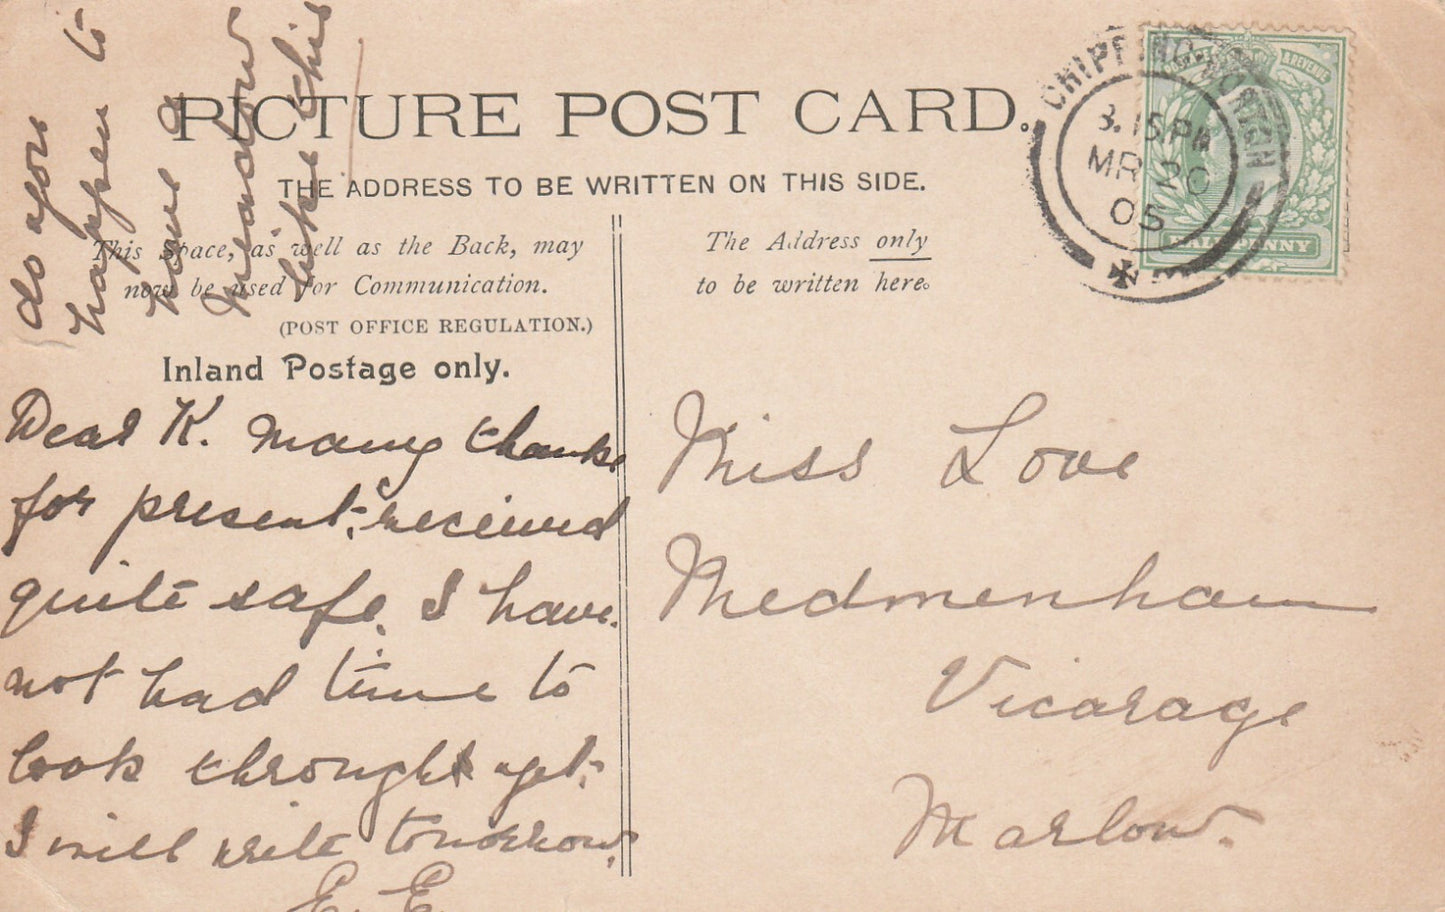 do you
happen to
have a
window
like this
PICTURE POST CARD.
THE ADDRESS TO BE WRITTEN ON THIS SIDE.
This Space, as well as the Back, may
now be used for Communication.
(POST OFFICE REGULATION.)
Inland Postage only.
Dear K. Many thanks
for present, received
quite safe. I have
not had time to
look through yet.
I will write tomorrow.
E. E.
The Address only
to be written here.
CHIPPING NORTON
3.15 PM
MR 20
05
& REVENUE
HALFPENNY
Miss Love
Medmenham
Vicarage
Marlow.